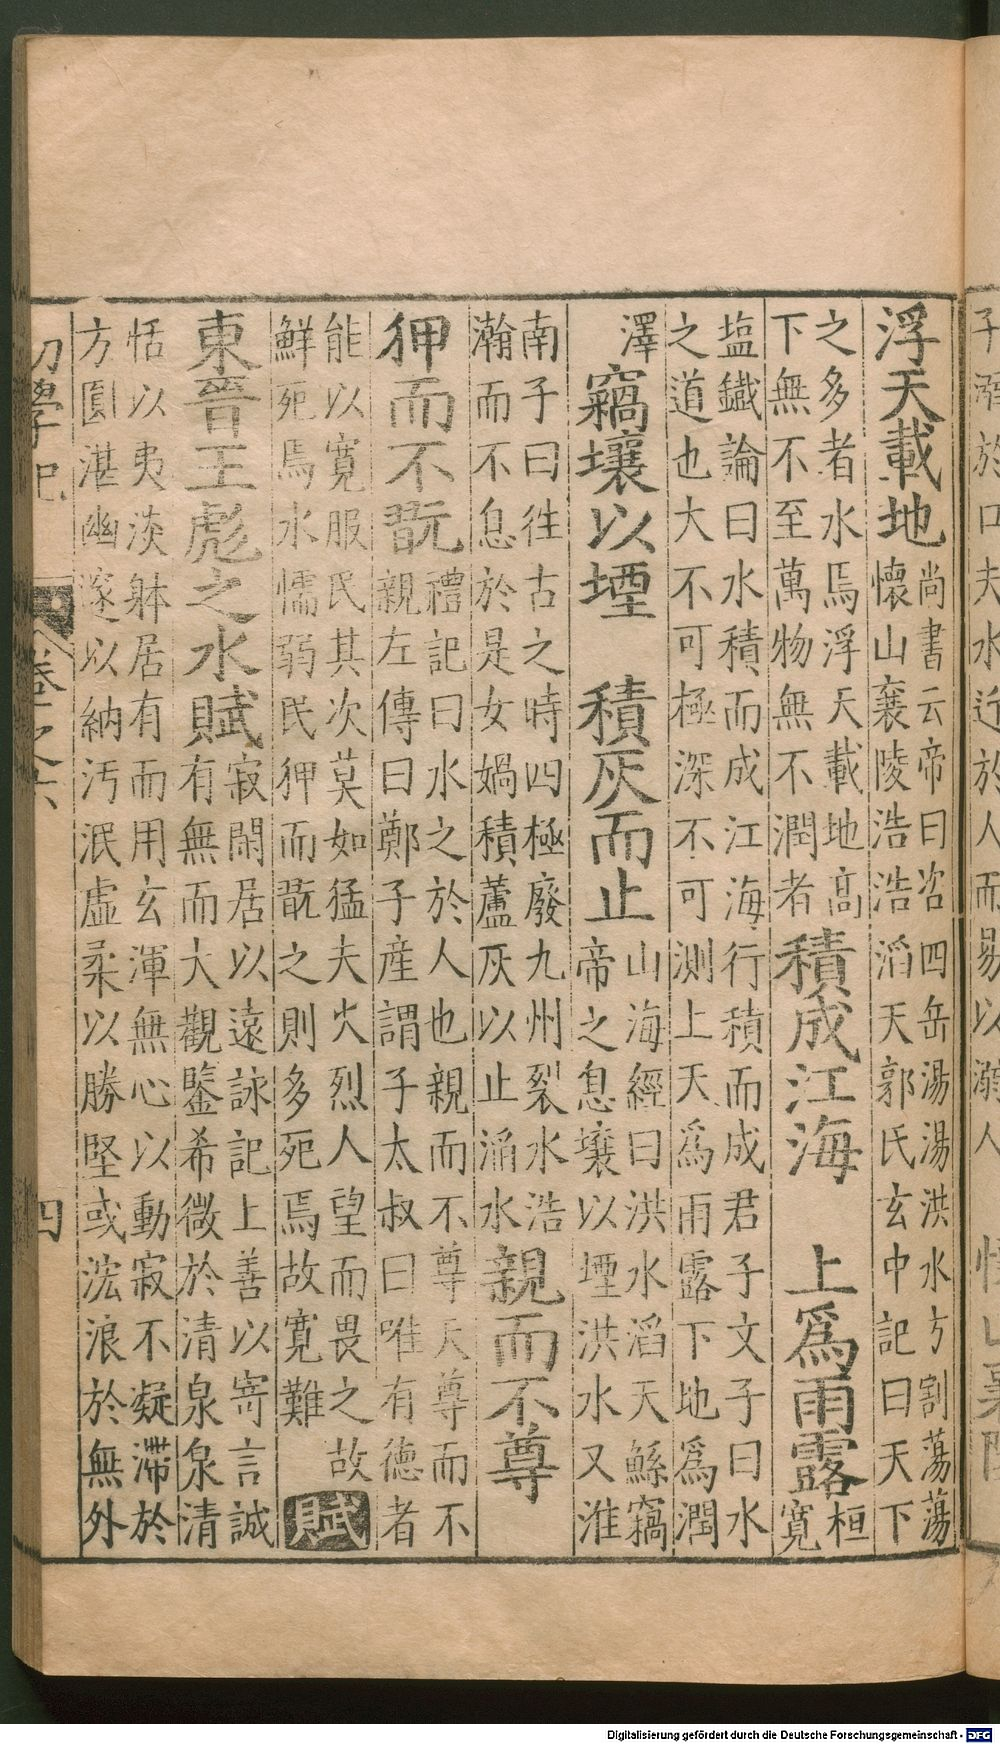 子溺於口夫水近於人而易以溺人
浮天載地尚書云帝曰咨四岳湯湯洪水方割蕩蕩懷山襄陵浩浩滔天郭氏玄中記曰天下
之多者水焉浮天載地高下無不至萬物無不潤者積成江海 上爲雨露桓寬
塩鐡論曰水積而成江海行積而成君子文子曰水之道也大不可極深不可測上天爲雨露下地爲潤
澤 竊壤以堙 積灰而止山海經曰洪水滔天鯀竊帝之息壤以堙洪水又淮
南子曰徃古之時四極廢九州裂水浩瀚而不息於是女媧積蘆灰以止滔水親而不尊
狎而不翫禮記曰水之於人也親而不尊天尊而不親左傳曰鄭子産謂子太叔曰唯有德者
能以寛服民其次莫如猛夫火烈人望而畏之故鮮死焉水懦弱民狎而翫之則多死焉故寛難 賦
東晉王彪之水賦寂閑居以遠詠記上善以寄言誠有無而大觀鑒希微於清泉泉清
恬以夷淡躰居有而用玄渾無心以動寂不凝滯於方圓湛幽邃以納污泯虛柔以勝堅或浤浪於無外
初學記 卷之六 四
Digitalisierung gefördert durch die Deutsche Forschungsgemeinschaft - DFG